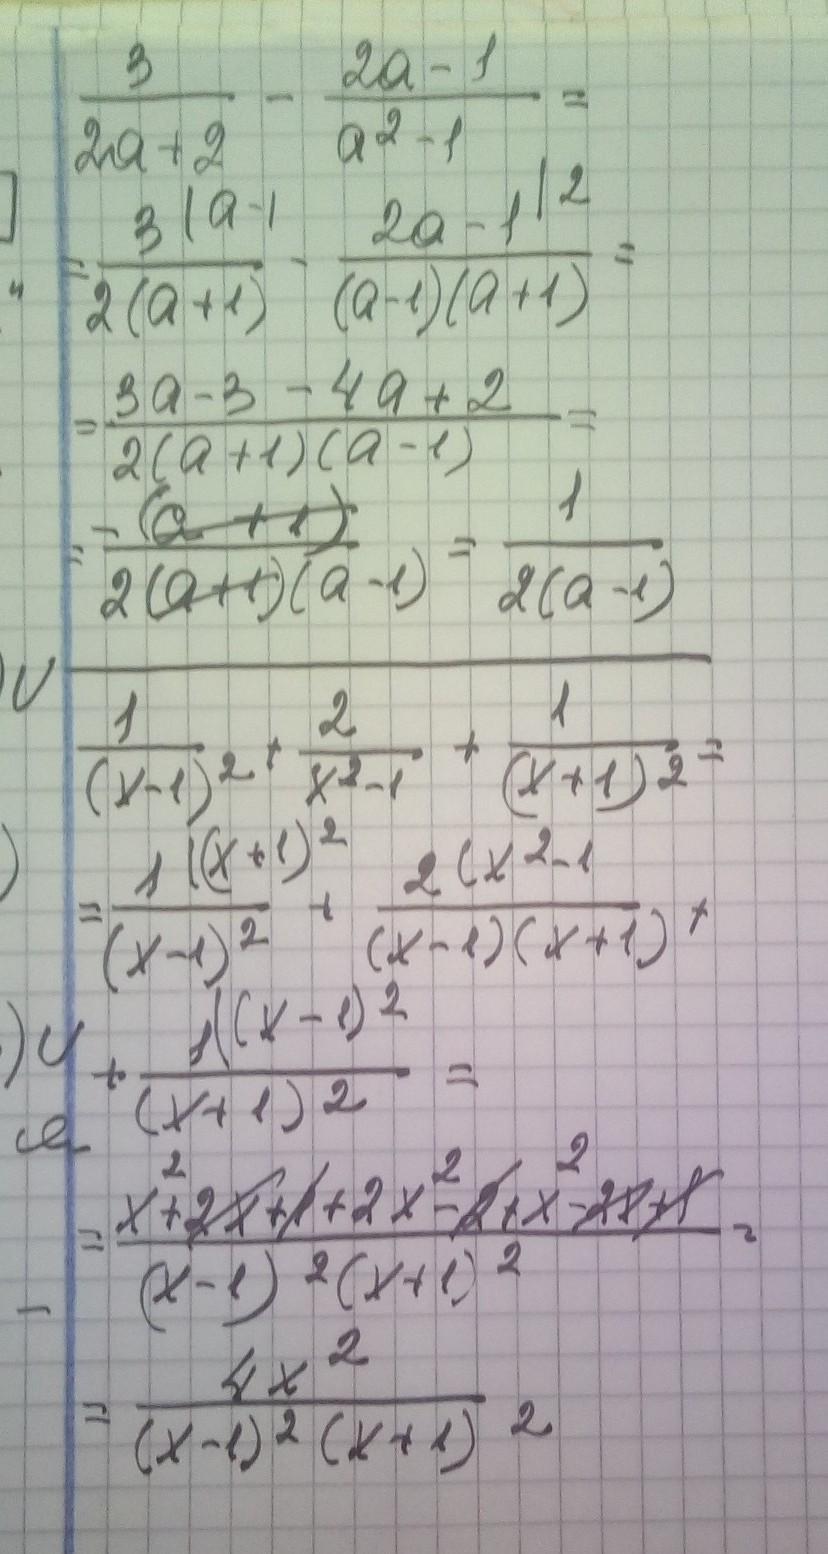 3/(2a+2) - (2a-1)/(a²-1) =
= 3|a-1/(2(a+1)) - 2a-1|2/((a-1)(a+1)) =
= (3a-3-4a+2)/(2(a+1)(a-1)) =
= -(a+1)/(2(a+1)(a-1)) = 1/(2(a-1))
1/(x-1)² + 2/(x²-1) + 1/(x+1)² =
= 1|(x+1)²/(x-1)² + 2(x²-1/((x-1)(x+1)) +
+ 1|(x-1)²/(x+1)² =
= (x²+2x+1+2x²-2+x²-2x+1)/((x-1)²(x+1)²) =
= 4x²/((x-1)²(x+1)²)